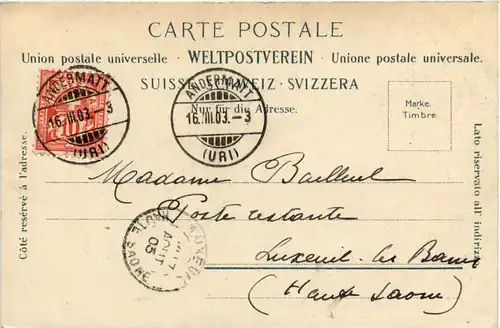 CARTE POSTALE
Union postale universelle · WELTPOSTVEREIN · Unione postale universale.
SUISSE SCHWEIZ · SVIZZERA
Nur für die Adresse.
Marke.
Timbre
Côté réservé à l'adresse.
Lato riservato all'indirizzo.
ANDERMATT
16.III.03.-3
(URI)
ANDERMATT
16.III.03.-3
(URI)
Madame Bailleul
Poste restante
Luxeuil les Bains
(Haute Saone)
LUXEUIL
AOUT
03
HTE SAONE